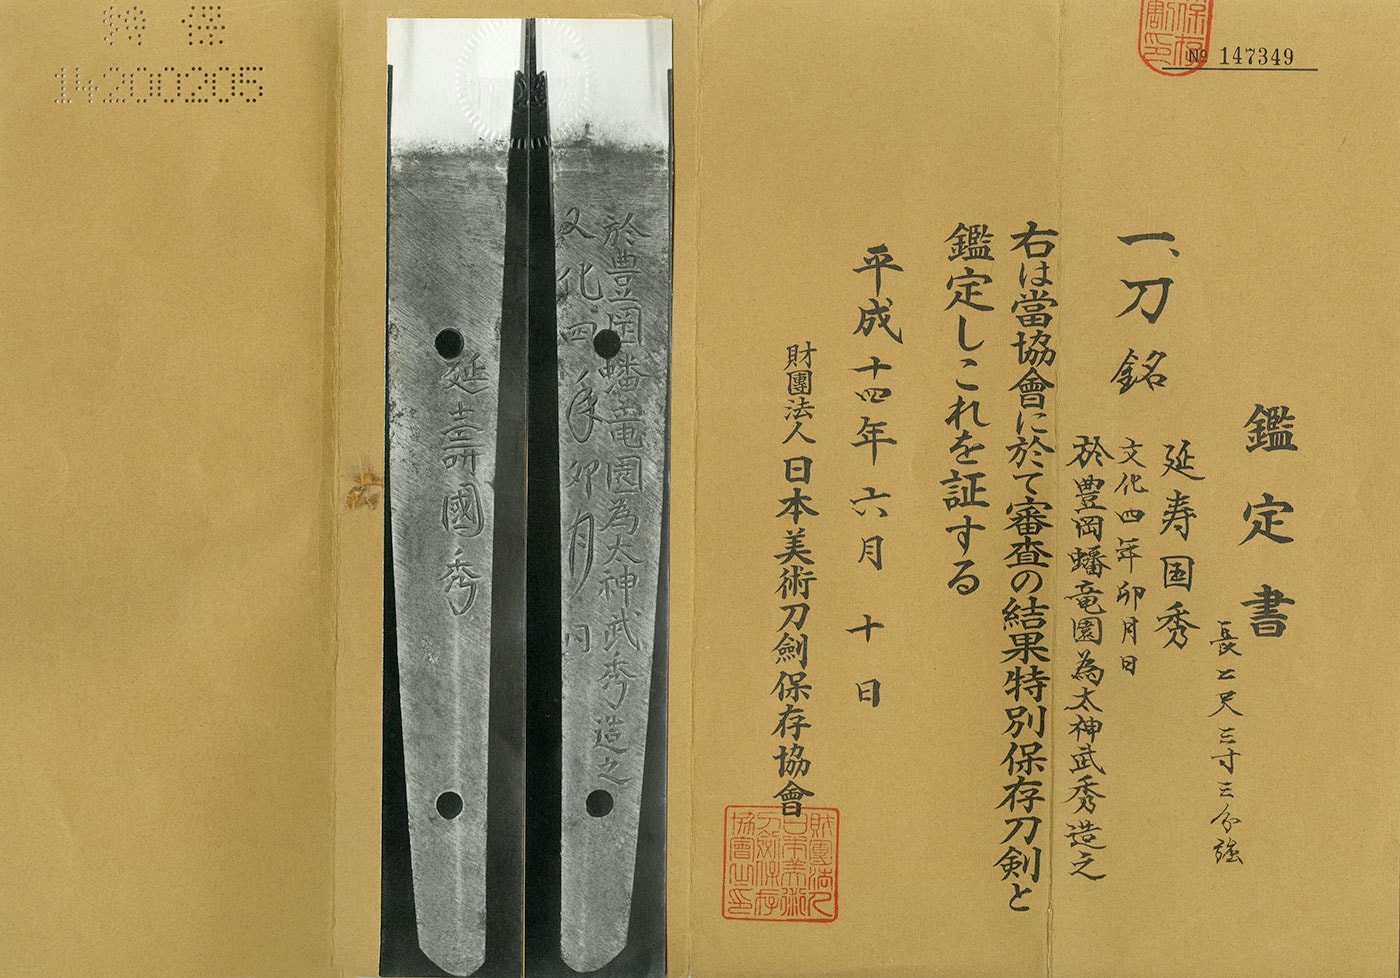 № 147349
鑑定書
長二尺三寸三分強
一、刀 銘 延寿国秀
文化四年卯月日
於豊岡蟠竜園為太神武秀造之
右は當協會に於て審査の結果特別保存刀剣と
鑑定しこれを証する
平成十四年六月十日
財團法人日本美術刀劍保存協會
財團法人日本美術刀劍保存協會之印
保存
割印
於豊岡蟠竜園為太神武秀造之
文化四年卯月日
延壽國秀
特保
14200205